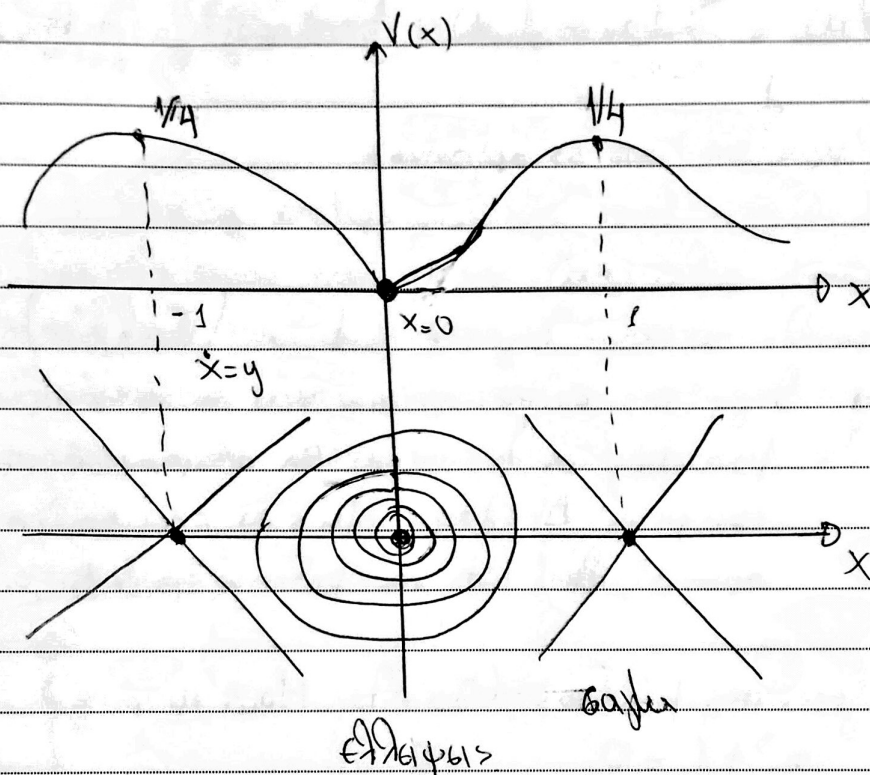 V(x)
1/4 1/4
-1 x=0 1 x
ẋ=y
x
σαγμα
ελλειψεις